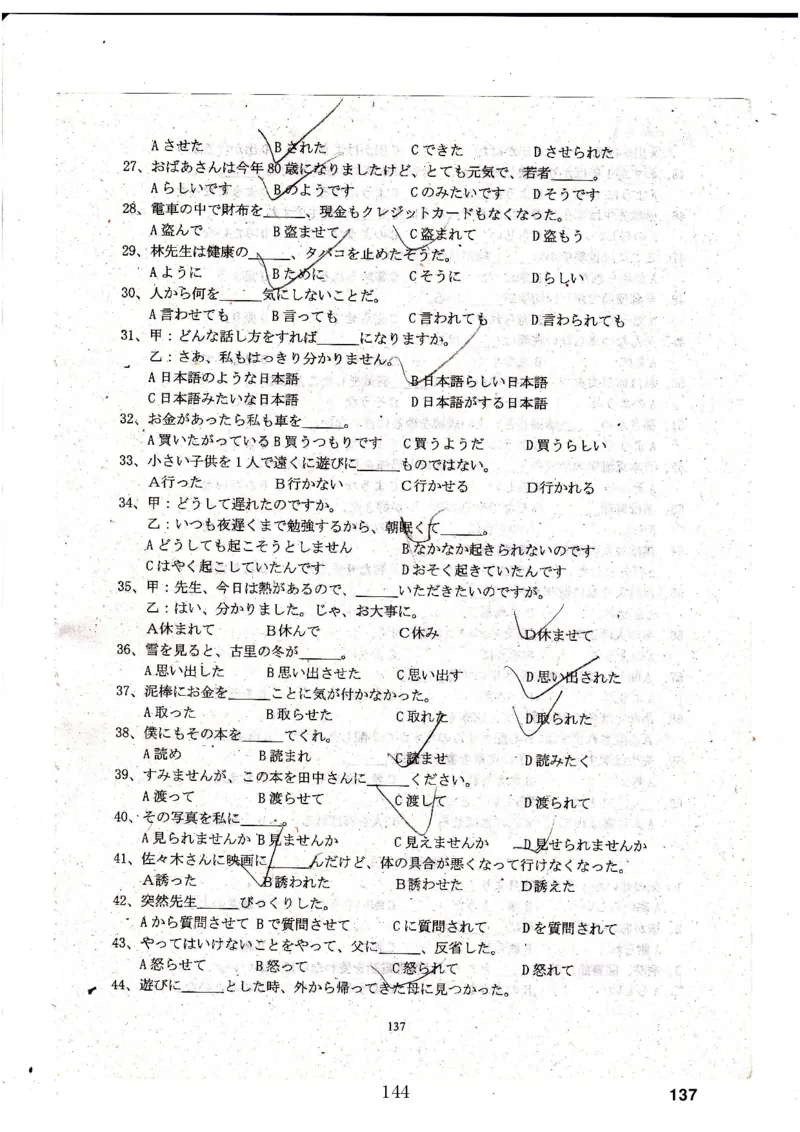 Aさせた　Bされた　Cできた　Dさせられた
27、おばあさんは今年80歳になりましたけど、とても元気で、若者_____。
Aらしいです　Bのようです　Cのみたいです　Dそうです
28、電車の中で財布を_____、現金もクレジットカードもなくなった。
A盗んで　B盗ませて　C盗まれて　D盗もう
29、林先生は健康の_____、タバコを止めたそうだ。
Aように　Bために　Cそうに　Dらしい
30、人から何を_____気にしないことだ。
A言わせても　B言っても　C言われても　D言わられても
31、甲：どんな話し方をすれば_____になりますか。
乙：さあ、私もはっきり分かりません。
A日本語のような日本語　B日本語らしい日本語
C日本語みたいな日本語　D日本語がする日本語
32、お金があったら私も車を_____。
A買いたがっている B買うつもりです　C買うようだ　D買うらしい
33、小さい子供を1人で遠くに遊びに_____ものではない。
A行った　B行かない　C行かせる　D行かれる
34、甲：どうして遅れたのですか。
乙：いつも夜遅くまで勉強するから、朝眠くて_____。
Aどうしても起こそうとしません　Bなかなか起きられないのです
Cはやく起こしていたんです　Dおそく起きていたんです
35、甲：先生、今日は熱があるので、_____いただきたいのですが。
乙：はい、分かりました。じゃ、お大事に。
A休まれて　B休んで　C休み　D休ませて
36、雪を見ると、古里の冬が_____。
A思い出した　B思い出させた　C思い出す　D思い出された
37、泥棒にお金を_____ことに気が付かなかった。
A取った　B取らせた　C取れた　D取られた
38、僕にもその本を_____てくれ。
A読め　B読まれ　C読ませ　D読みたく
39、すみませんが、この本を田中さんに_____ください。
A渡って　B渡らせて　C渡して　D渡られて
40、その写真を私に_____。
A見られませんか B見ませんか　C見えませんか　D見せられませんか
41、佐々木さんに映画に_____んだけど、体の具合が悪くなって行けなくなった。
A誘った　B誘われた　B誘わせた　D誘えた
42、突然先生_____びっくりした。
Aから質問させて Bで質問させて　Cに質問されて　Dを質問されて
43、やってはいけないことをやって、父に_____、反省した。
A怒らせて　B怒って　C怒られて　D怒れて
44、遊びに_____とした時、外から帰ってきた母に見つかった。
137
144
137